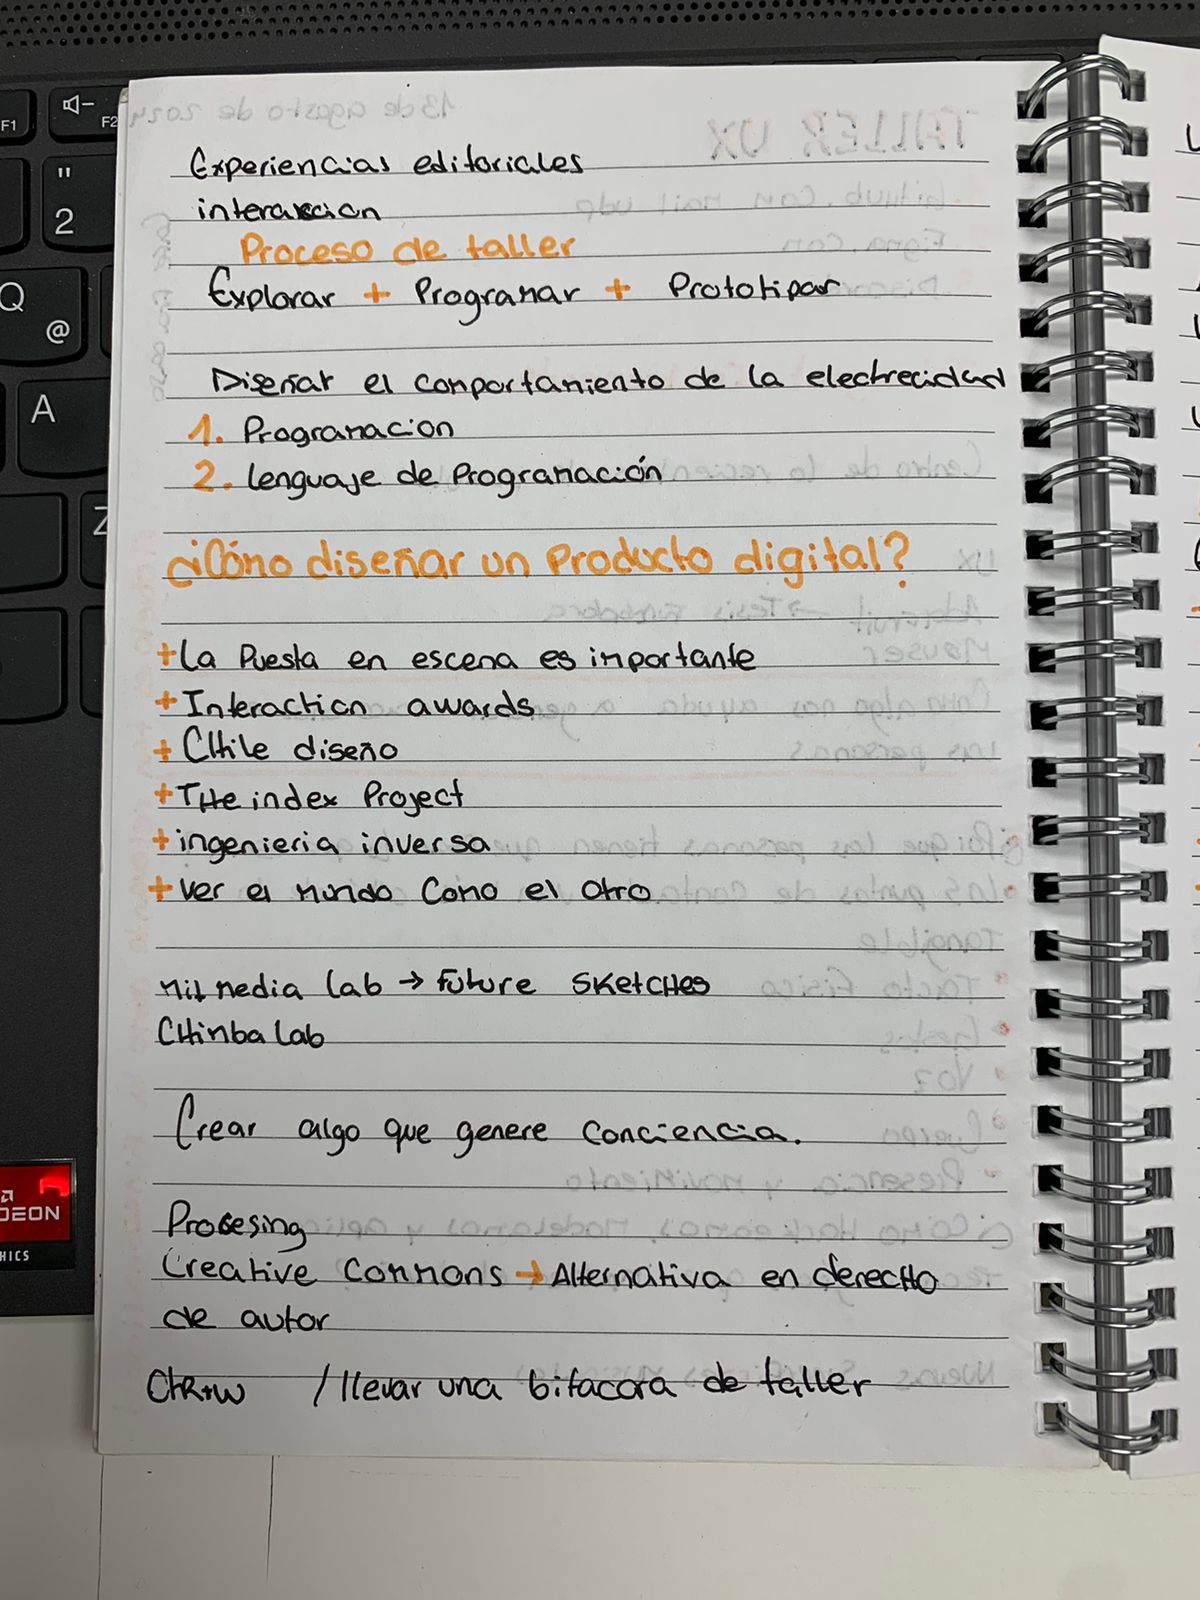 Experiencias editoriales
interaccion
Proceso de taller
Explorar + Programar + Prototipar
Diseñar el comportamiento de la electrecidad
1. Programacion
2. lenguaje de Programación
¿Cómo diseñar un Producto digital?
+ La Puesta en escena es importante
+ Interaction awards
+ CHile diseño
+ THe index Project
+ ingenieria inversa
+ ver el mundo como el otro
Mit media lab → Future SKetCHes
CHimba lab
Crear algo que genere conciencia.
Procesing
Creative Commons → Alternativa en derecHo
de autor
CtR+W / llevar una bitacora de taller
F1
F2
"
2
Q
@
A
Z
DEON
HICS